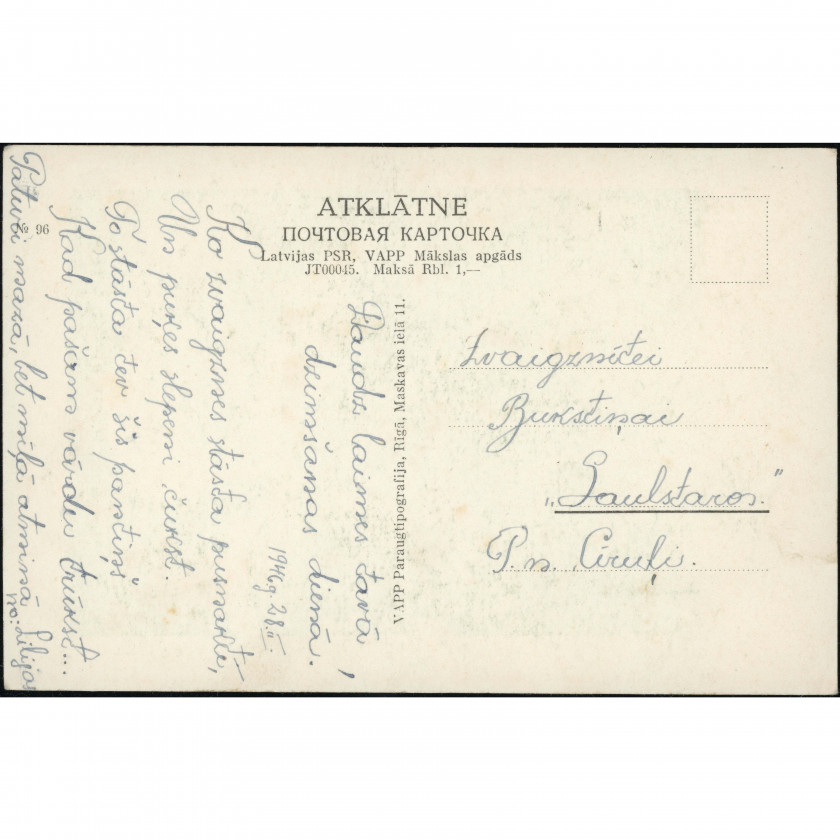 ATKLĀTNE
ПОЧТОВАЯ КАРТОЧКА
Latvijas PSR, VAPP Mākslas apgāds
JT00045. Maksā Rbl. 1,—
№ 96
VAPP Paraugtipografija, Rīgā, Maskavas ielā 11.
Daudz laimes tavā
dzimšanas dienā!
1946g. 28.II.
Ko zvaigznes stāsta pusnaktī,
Un puķes slepeni čukst.
To stāsta tev šis pantiņš
Kad pašam vārdu trūkst...
Paturi mazā, bet mīļā atmiņā
no: Lilijas
Zvaigznītei
Bukstiņai
„Saulstaros."
P. n. Cīruļi.